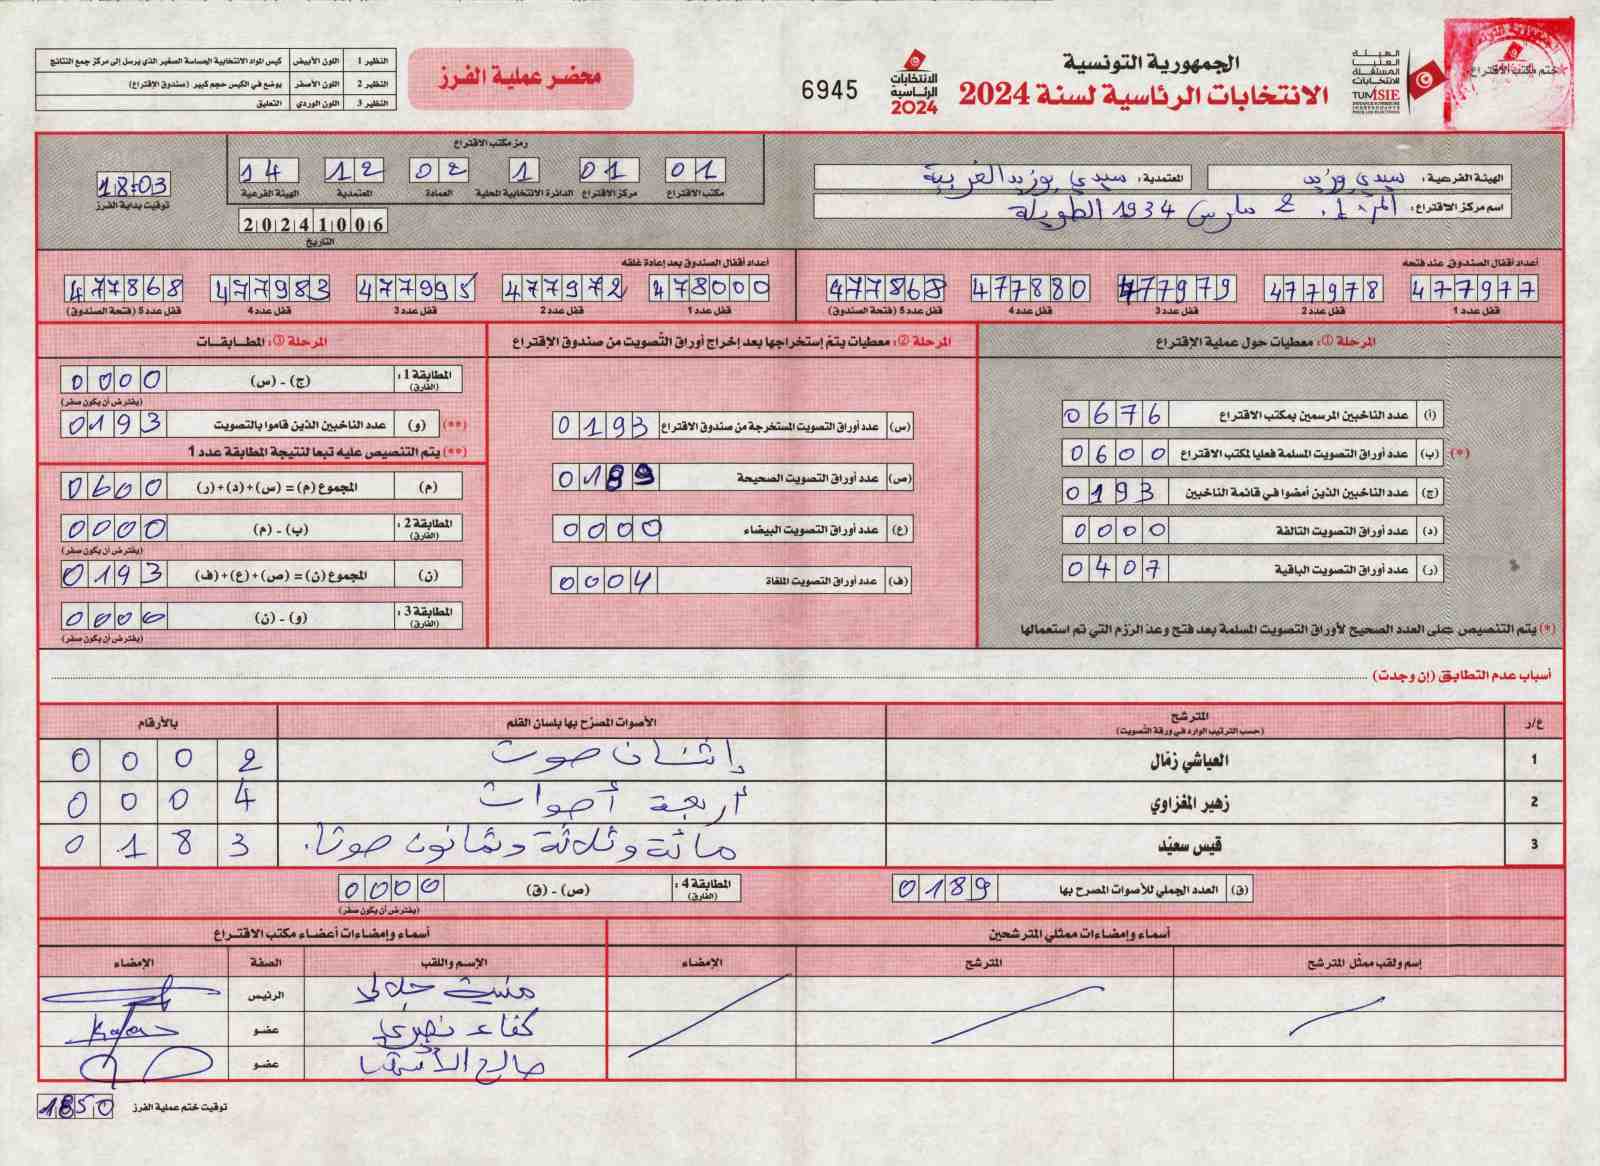 ختم مكتب الاقتراع
الهيئة العليا المستقلة للانتخابات
TUNISIE
الجمهورية التونسية
الانتخابات الرئاسية لسنة 2024
الانتخابات الرئاسية 2024
6945
محضر عملية الفرز
النظير 1 اللون الأبيض كيس المواد الانتخابية الحساسة الصغير الذي يرسل إلى مركز جمع النتائج
النظير 2 اللون الأصفر يوضع في الكيس حجم كبير (صندوق الإقتراع)
النظير 3 اللون الوردي التعليق
الهيئة الفرعية: سيدي بوزيد
المعتمدية: سيدي بوزيد الغربية
اسم مركز الاقتراع: 2 مارس 1934 الطويلة
رمز مكتب الاقتراع
01 01 1 02 12 14
مكتب الاقتراع مركز الاقتراع الدائرة الانتخابية المحلية العمادة المعتمدية الهيئة الفرعية
20241006
التاريخ
18:03
توقيت بداية الفرز
أعداد أقفال الصندوق عند فتحه
477977 477978 477979 477880 477868
قفل عدد 1 قفل عدد 2 قفل عدد 3 قفل عدد 4 قفل عدد 5 (فتحة الصندوق)
أعداد أقفال الصندوق بعد إعادة غلقه
478000 477972 477995 477983 477868
قفل عدد 1 قفل عدد 2 قفل عدد 3 قفل عدد 4 قفل عدد 5 (فتحة الصندوق)
المرحلة ①: معطيات حول عملية الإقتراع
(أ) عدد الناخبين المرسمين بمكتب الاقتراع 0676
(*) (ب) عدد أوراق التصويت المسلمة فعليا لمكتب الاقتراع 0600
(ج) عدد الناخبين الذين أمضوا في قائمة الناخبين 0193
(د) عدد أوراق التصويت التالفة 0000
(ر) عدد أوراق التصويت الباقية 0407
(*) يتم التنصيص على العدد الصحيح لأوراق التصويت المسلمة بعد فتح وعد الرزم التي تم استعمالها
المرحلة ②: معطيات يتم إستخراجها بعد إخراج أوراق التصويت من صندوق الإقتراع
(س) عدد أوراق التصويت المستخرجة من صندوق الاقتراع 0193
(ص) عدد أوراق التصويت الصحيحة 0189
(ع) عدد أوراق التصويت البيضاء 0000
(ف) عدد أوراق التصويت الملغاة 0004
المرحلة ③: المطابقات
المطابقة 1: (الفارق) (ج) - (س) 0000
(يفترض أن يكون صفر)
(**) (و) عدد الناخبين الذين قاموا بالتصويت 0193
(**) يتم التنصيص عليه تبعا لنتيجة المطابقة عدد 1
(م) المجموع (م) = (س)+(د)+(ر) 0600
المطابقة 2: (الفارق) (ب) - (م) 0000
(يفترض أن يكون صفر)
(ن) المجموع (ن) = (ص)+(ع)+(ف) 0193
المطابقة 3: (الفارق) (و) - (ن) 0000
(يفترض أن يكون صفر)
أسباب عدم التطابق (إن وجدت)
ع/ر المترشح (حسب الترتيب الوارد في ورقة التصويت) الأصوات المصرّح بها بلسان القلم بالأرقام
1 العياشي زمّال إثنان صوت 0002
2 زهير المغزاوي أربعة أصوات 0004
3 قيس سعيّد مائة وثلاثة وثمانون صوتا. 0183
(ق) العدد الجملي للأصوات المصرح بها 0189
المطابقة 4: (الفارق) (ص) - (ق) 0000
(يفترض أن يكون صفر)
أسماء وإمضاءات ممثلي المترشحين
إسم ولقب ممثّل المترشح المترشح الإمضاء
أسماء وإمضاءات أعضاء مكتب الاقتراع
الإسم واللقب الصفة الإمضاء
منية جلالي الرئيس
كفاء نصري عضو
صالح عضو
توقيت ختم عملية الفرز 1850